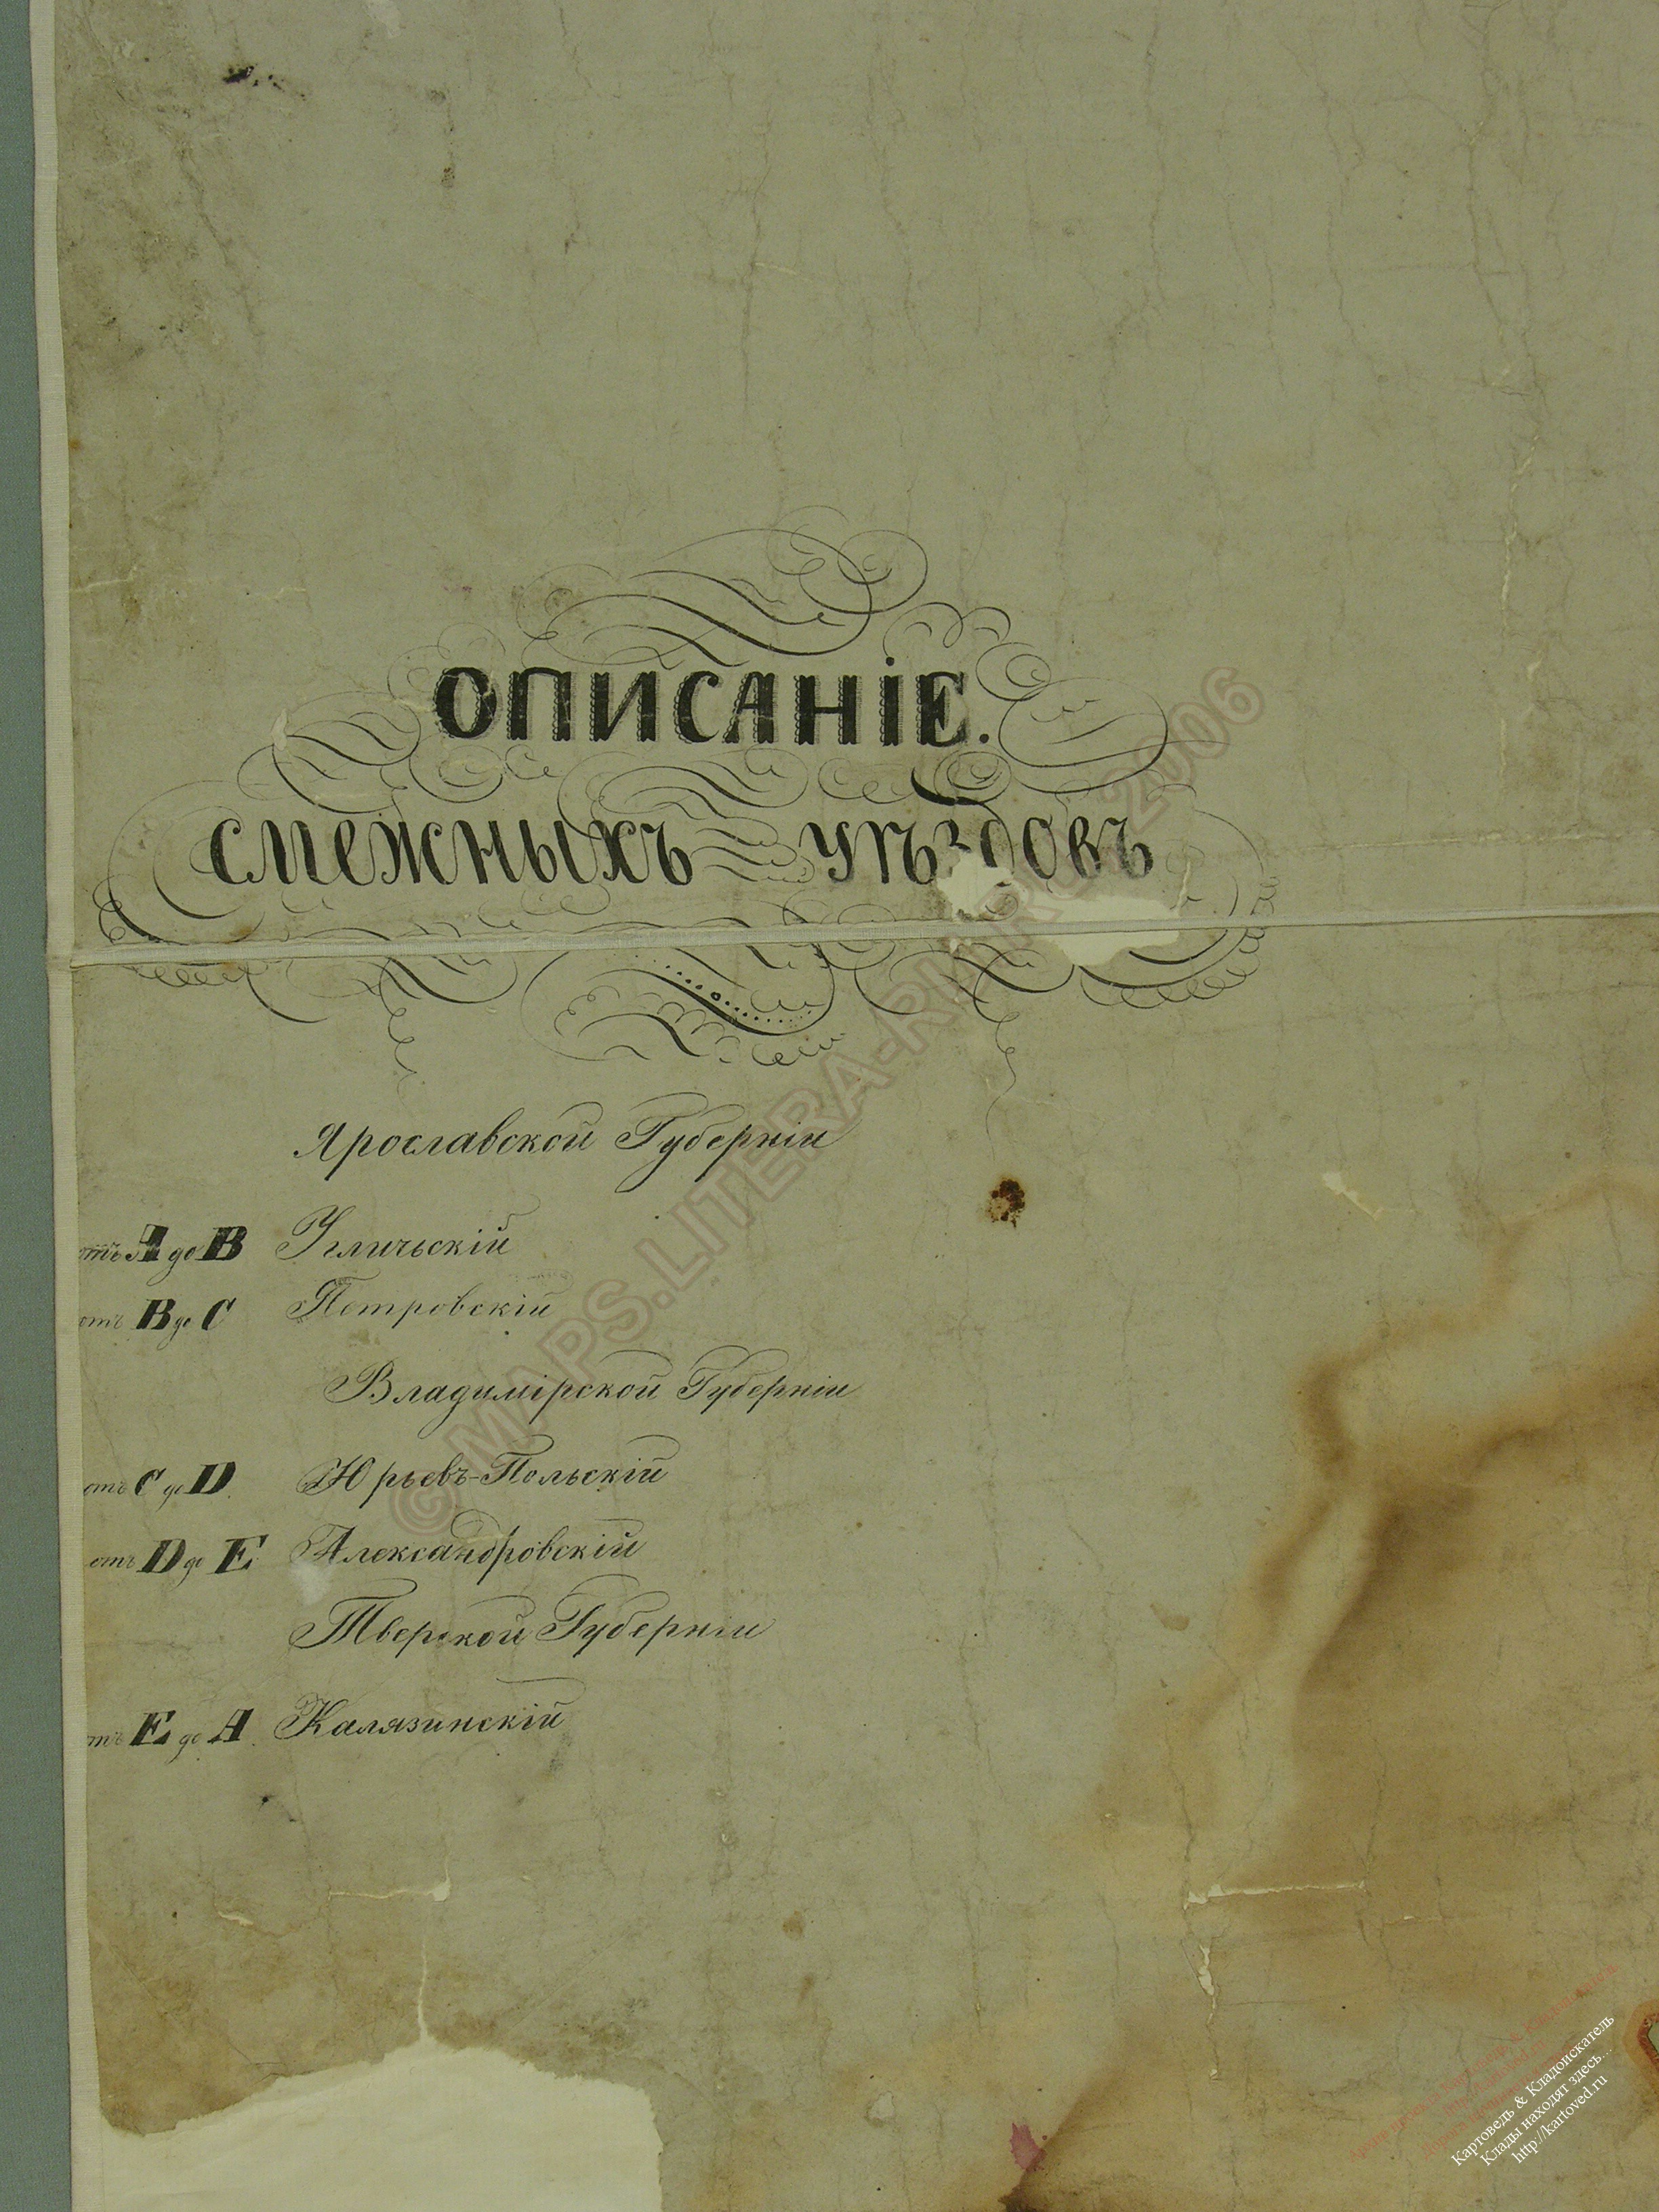 ОПИСАНІЕ.
СМЕЖНЫХЪ УѢЗДОВЪ
Ярославской Губерніи
отъ A до B Угличьскій
отъ B до C Петровскій
Владимірской Губерніи
отъ C до D Юрьевъ-Польскій
отъ D до E Александровскій
Тверской Губерніи
отъ E до A Калязинскій
© MAPS.LITERA-RU.RU 2006
Картоведъ & Кладоискатель
Клады находят здесь...
http://kartoved.ru